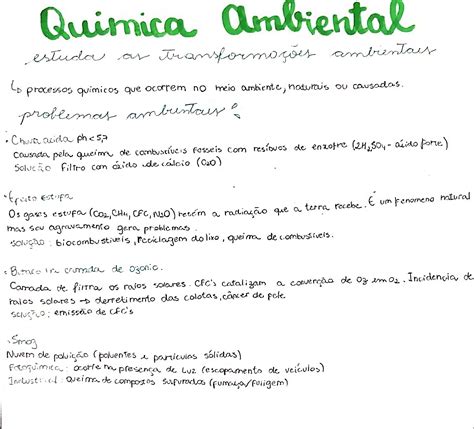 Química Ambiental
estuda as transformações ambientais
↳ processos químicos que ocorrem no meio ambiente, naturais ou causadas.
problemas ambientais:
• Chuva ácida ph<5,7
Causada pela queima de combustíveis fosseis com resíduos de enxofre (2H₂SO₄ - ácido forte)
Solução Filtro com óxido de cálcio (CaO)
• Efeito estufa
Os gases estufa (CO₂, CH₄, CFC, N₂O) retém a radiação que a terra recebe. É um fenomeno natural
mas seu agravamento gera problemas.
solução: biocombustíveis, reciclagem do lixo, queima de combustíveis.
• Buraco na camada de ozonio.
Camada de filtra os raios solares. CFC's catalizam a converção de O₃ em O₂. Incidencia de
raios solares → derretimento das calotas, câncer de pele
solução: emissão de CFC's
• Smog
Nuvem de poluição (poluentes e partículas sólidas)
Fotoquímica: ocorre na presença de luz (escapamento de veículos)
Industrial: queima de compostos sufurados (fumaça/fuligem)